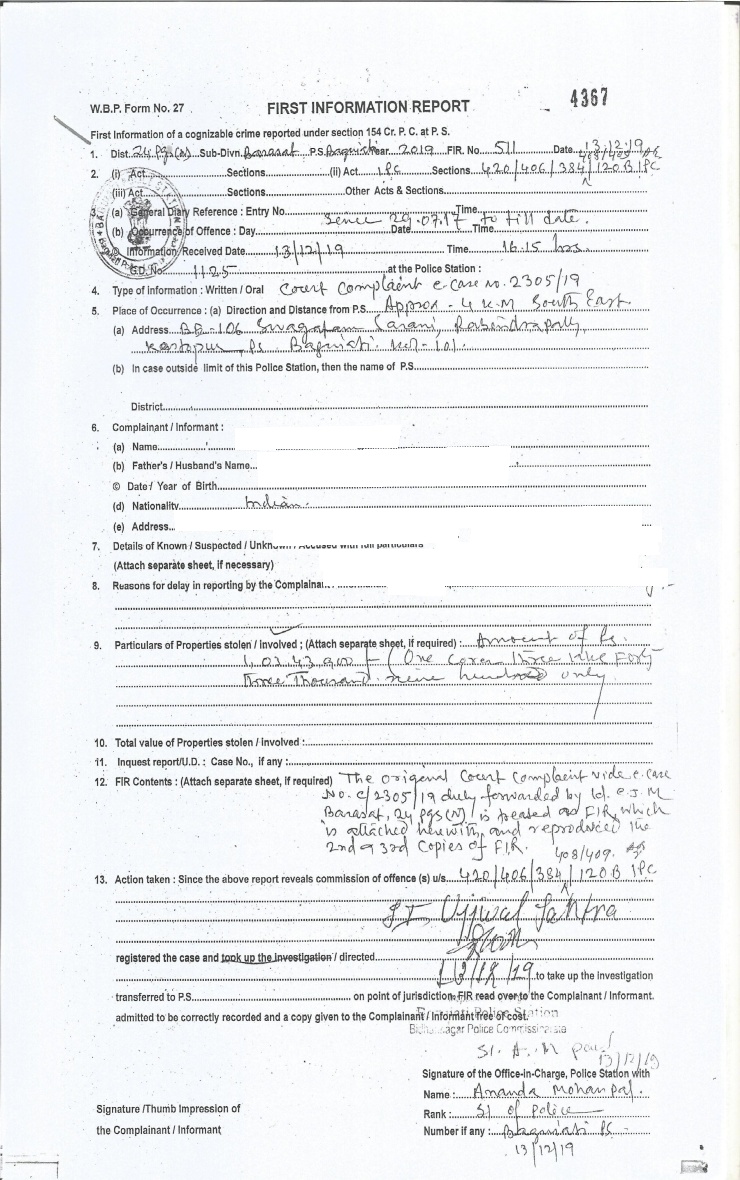 4367
W.B.P. Form No. 27 FIRST INFORMATION REPORT
First Information of a cognizable crime reported under section 154 Cr. P. C. at P. S.
1. Dist. 24 Pgs(N) Sub-Divn. Barasat P.S. Baguiati Year 2019 FIR. No. 511 Date 13/12/19
408/409
2. (i) Act Sections (ii) Act IPC Sections 420/406/384/120B IPC
(iii) Act Sections Other Acts & Sections
3. (a) General Diary Reference : Entry No. Time
Sence 29.07.17 to till date.
(b) Occurrence of Offence : Day Date Time
© Information Received Date 13/12/19 Time 16.15 hrs
G.D. No. 1125 at the Police Station :
4. Type of information : Written / Oral Court Complaint c-case no. 2305/19
5. Place of Occurrence : (a) Direction and Distance from P.S. Approx - 4 K.M South East
(a) Address BB-106 Swagatam Sarani, Rabindrapally,
Kestopur, Ps Baguiati. Kol-101.
(b) In case outside limit of this Police Station, then the name of P.S.
District
6. Complainant / Informant :
(a) Name
(b) Father's / Husband's Name
© Date / Year of Birth
(d) Nationality Indian.
(e) Address
7. Details of Known / Suspected / Unknown / Accused with full particulars
(Attach separate sheet, if necessary)
8. Reasons for delay in reporting by the Complaina
9. Particulars of Properties stolen / involved ; (Attach separate sheet, if required) : Amount of Rs.
1,03,43,900/- (One crore three lakh Forty
three Thousand nine hundred only
10. Total value of Properties stolen / involved :
11. Inquest report/U.D. : Case No., if any :
12. FIR Contents : (Attach separate sheet, if required) The original Court Complaint vide c-case
No. C/2305/19 duly forwarded by Ld. C.J.M
Barasat, 24 pgs(N) is treated as FIR, which
is attached herewith and reproduced the
2nd & 3rd Copies of FIR.
408/409.
13. Action taken : Since the above report reveals commission of offence (s) u/s. 420/406/384/120B IPC
SI Ujjwal
registered the case and took up the investigation / directed
13/12/19 to take up the investigation
transferred to P.S. on point of jurisdiction FIR read over to the Complainant / Informant.
admitted to be correctly recorded and a copy given to the Complainant / Informant free of cost.
Baguiati Police Station
Bidhannagar Police Commissionerate
SI. A. M Paul
13/12/19
Signature of the Office-In-Charge, Police Station with
Name : Ananda Mohan Pal.
Signature /Thumb Impression of Rank : SI of Police
the Complainant / Informant Number if any : Baguiati PS.
13/12/19